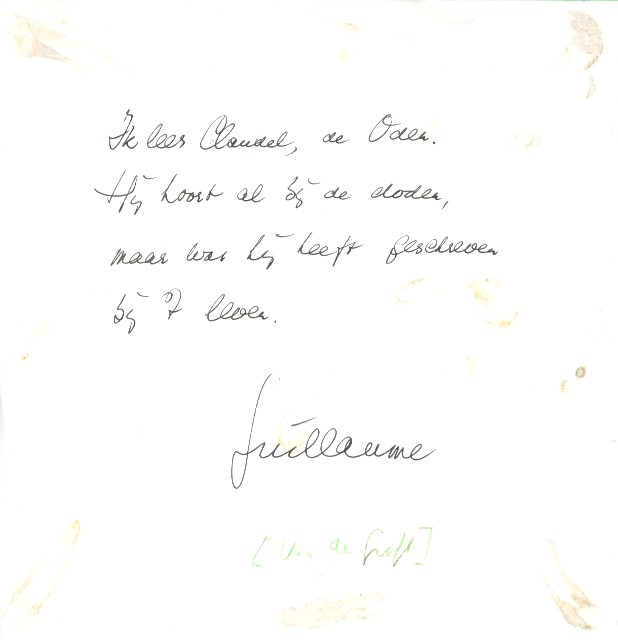 Ik lees Claudel, de Oden.
Hij hoort al bij de doden,
maar wat hij heeft geschreven
bij 't leven.
Guillaume
[Van de Graft]